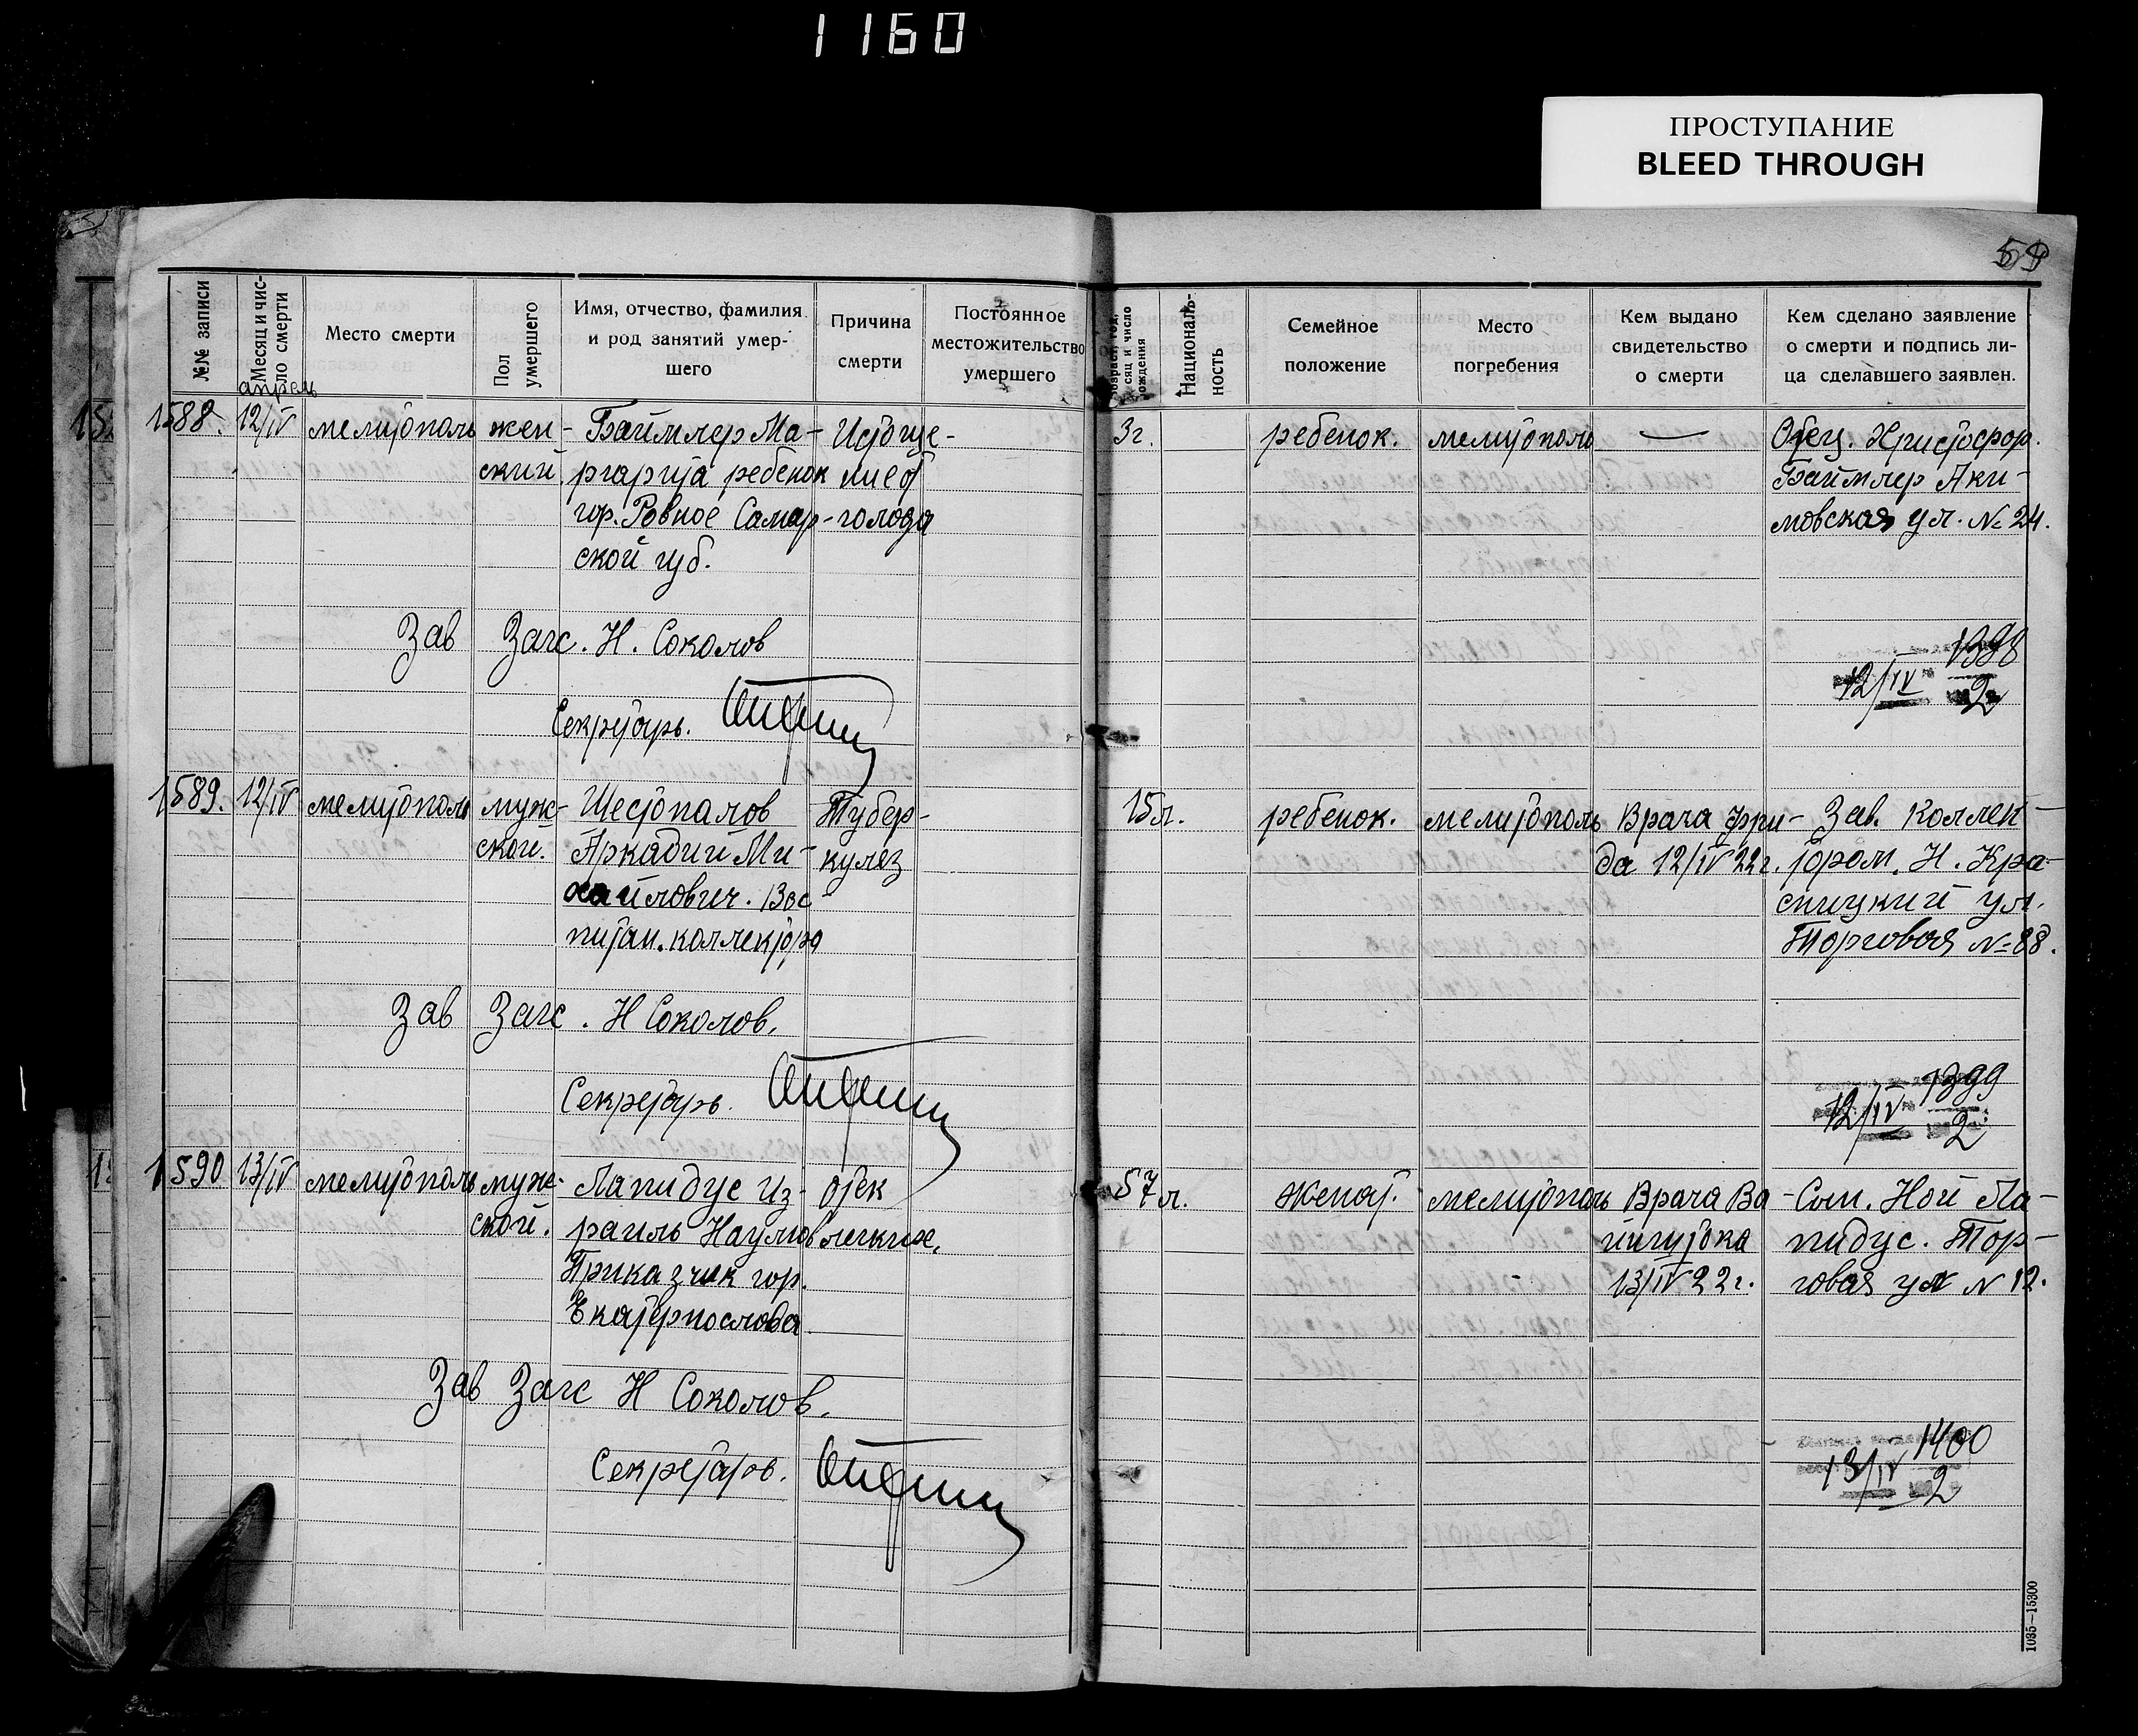 1160
ПРОСТУПАНИЕ
BLEED THROUGH
59
№№ записи
Месяц и чис-
ло смерти
Место смерти
Пол
умершего
Имя, отчество, фамилия
и род занятий умер-
шего
Причина
смерти
Постоянное
местожительство
умершего
Возраст, год,
сяц и число
рождения
Националь-
ность
Семейное
положение
Место
погребения
Кем выдано
свидетельство
о смерти
Кем сделано заявление
о смерти и подпись ли-
ца сделавшего заявлен.
апрель
1588.
12/IV
мелитополь
жен-
ский.
Баймлер Ма-
ргарита ребенок
гор. Ровное Самар-
ской губ.
Истоще-
ние от
голода
3г.
ребенок.
мелитополь
—
Отец. Христофор.
Баймлер Аки-
мовская ул. № 24.
Зав Загс. Н. Соколов
Секретарь.
12/IV 1398
2
1589.
12/IV
мелитополь
муж-
ской.
Шестопалов
Аркадий Ми-
хайлович. Вос-
питан. коллектора
Тубер-
кулез
15л.
ребенок.
мелитополь
Врача Фри-
да 12/IV 22г.
Зав. Коллек-
тором. Н. Кра-
сницкий ул.
Торговая № 88.
Зав Загс. Н Соколов.
Секретарь.
12/IV 1399
2
1590
13/IV
мелитополь
муж-
ской.
Лапидус Из-
раиль Наумов
Приказчик гор.
Екатеринослова
отек
легких.
57л.
женат.
мелитополь
Врача Ва
йнштока
13/IV 22г.
Сын. Ной Ла-
пидус. Тор-
говая ул № 12.
Зав Загс Н Соколов.
Секретарь.
13/IV 1400
2
1035—15300